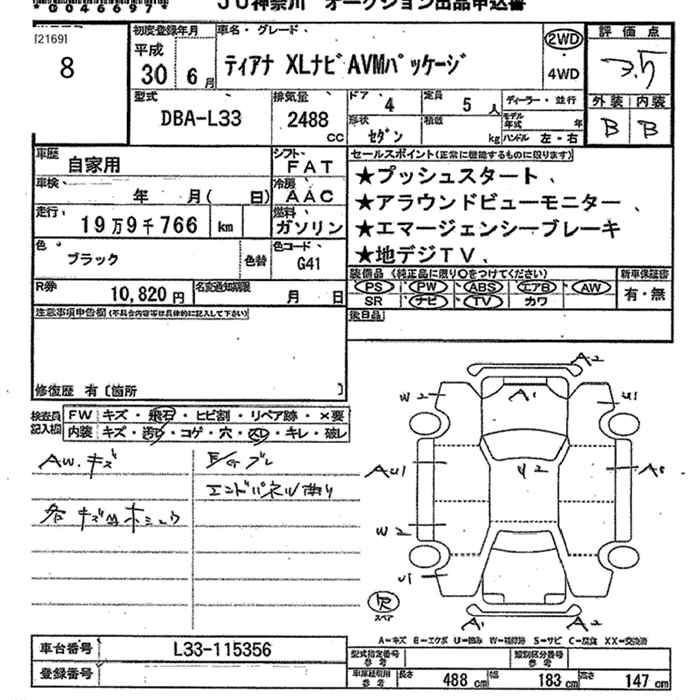 *0046697*
JU神奈川 オークション出品申込書
[2169]
8
初度登録年月
平成
30年 6月
車名・グレード
ティアナ XLナビAVMパッケージ
2WD
4WD
評価点
3.5
外装 内装
B B
型式
DBA-L33
排気量
2488
cc
ドア
4
定員
5人
ディーラー・並行
形状
セダン
積載
kg
モデル年式 年
ハンドル 左・右
車歴
自家用
シフト
FAT
車検
年 月(日)
冷房
AAC
走行
19万9千766 km
燃料
ガソリン
色
ブラック
色替
色コード
G41
R券
10,820円
名変通知期限
月 日
セールスポイント(正常に機能するものに限ります)
★プッシュスタート、
★アラウンドビューモニター、
★エマージェンシーブレーキ
★地デジTV、
装備品(純正品に限り○をつけてください)
新車保証書
PS PW ABS エアB AW
SR ナビ TV カワ
有・無
後日品
注意事項申告欄(不具合内容等は具体的に記入して下さい)
修復歴 有〔箇所 〕
検査員記入欄
FW キズ・飛石・ヒビ割・リペア跡・×要
内装 キズ・汚れ・コゲ・穴・スレ・キレ・破レ
AW.キズ
E/Gブレ
エンドパネル曲り
各キズ
A2
W2
A1
U1
AU1
U2
W2
U1
A1
A2
スペア
A=キズ E=エクボ U=凹み W=補修跡 S=サビ C=腐食 XX=交換済
車台番号
L33-115356
登録番号
型式指定番号
参考
類別区分番号
参考
車庫証明用
参考
長さ
488cm
幅
183cm
高さ
147cm